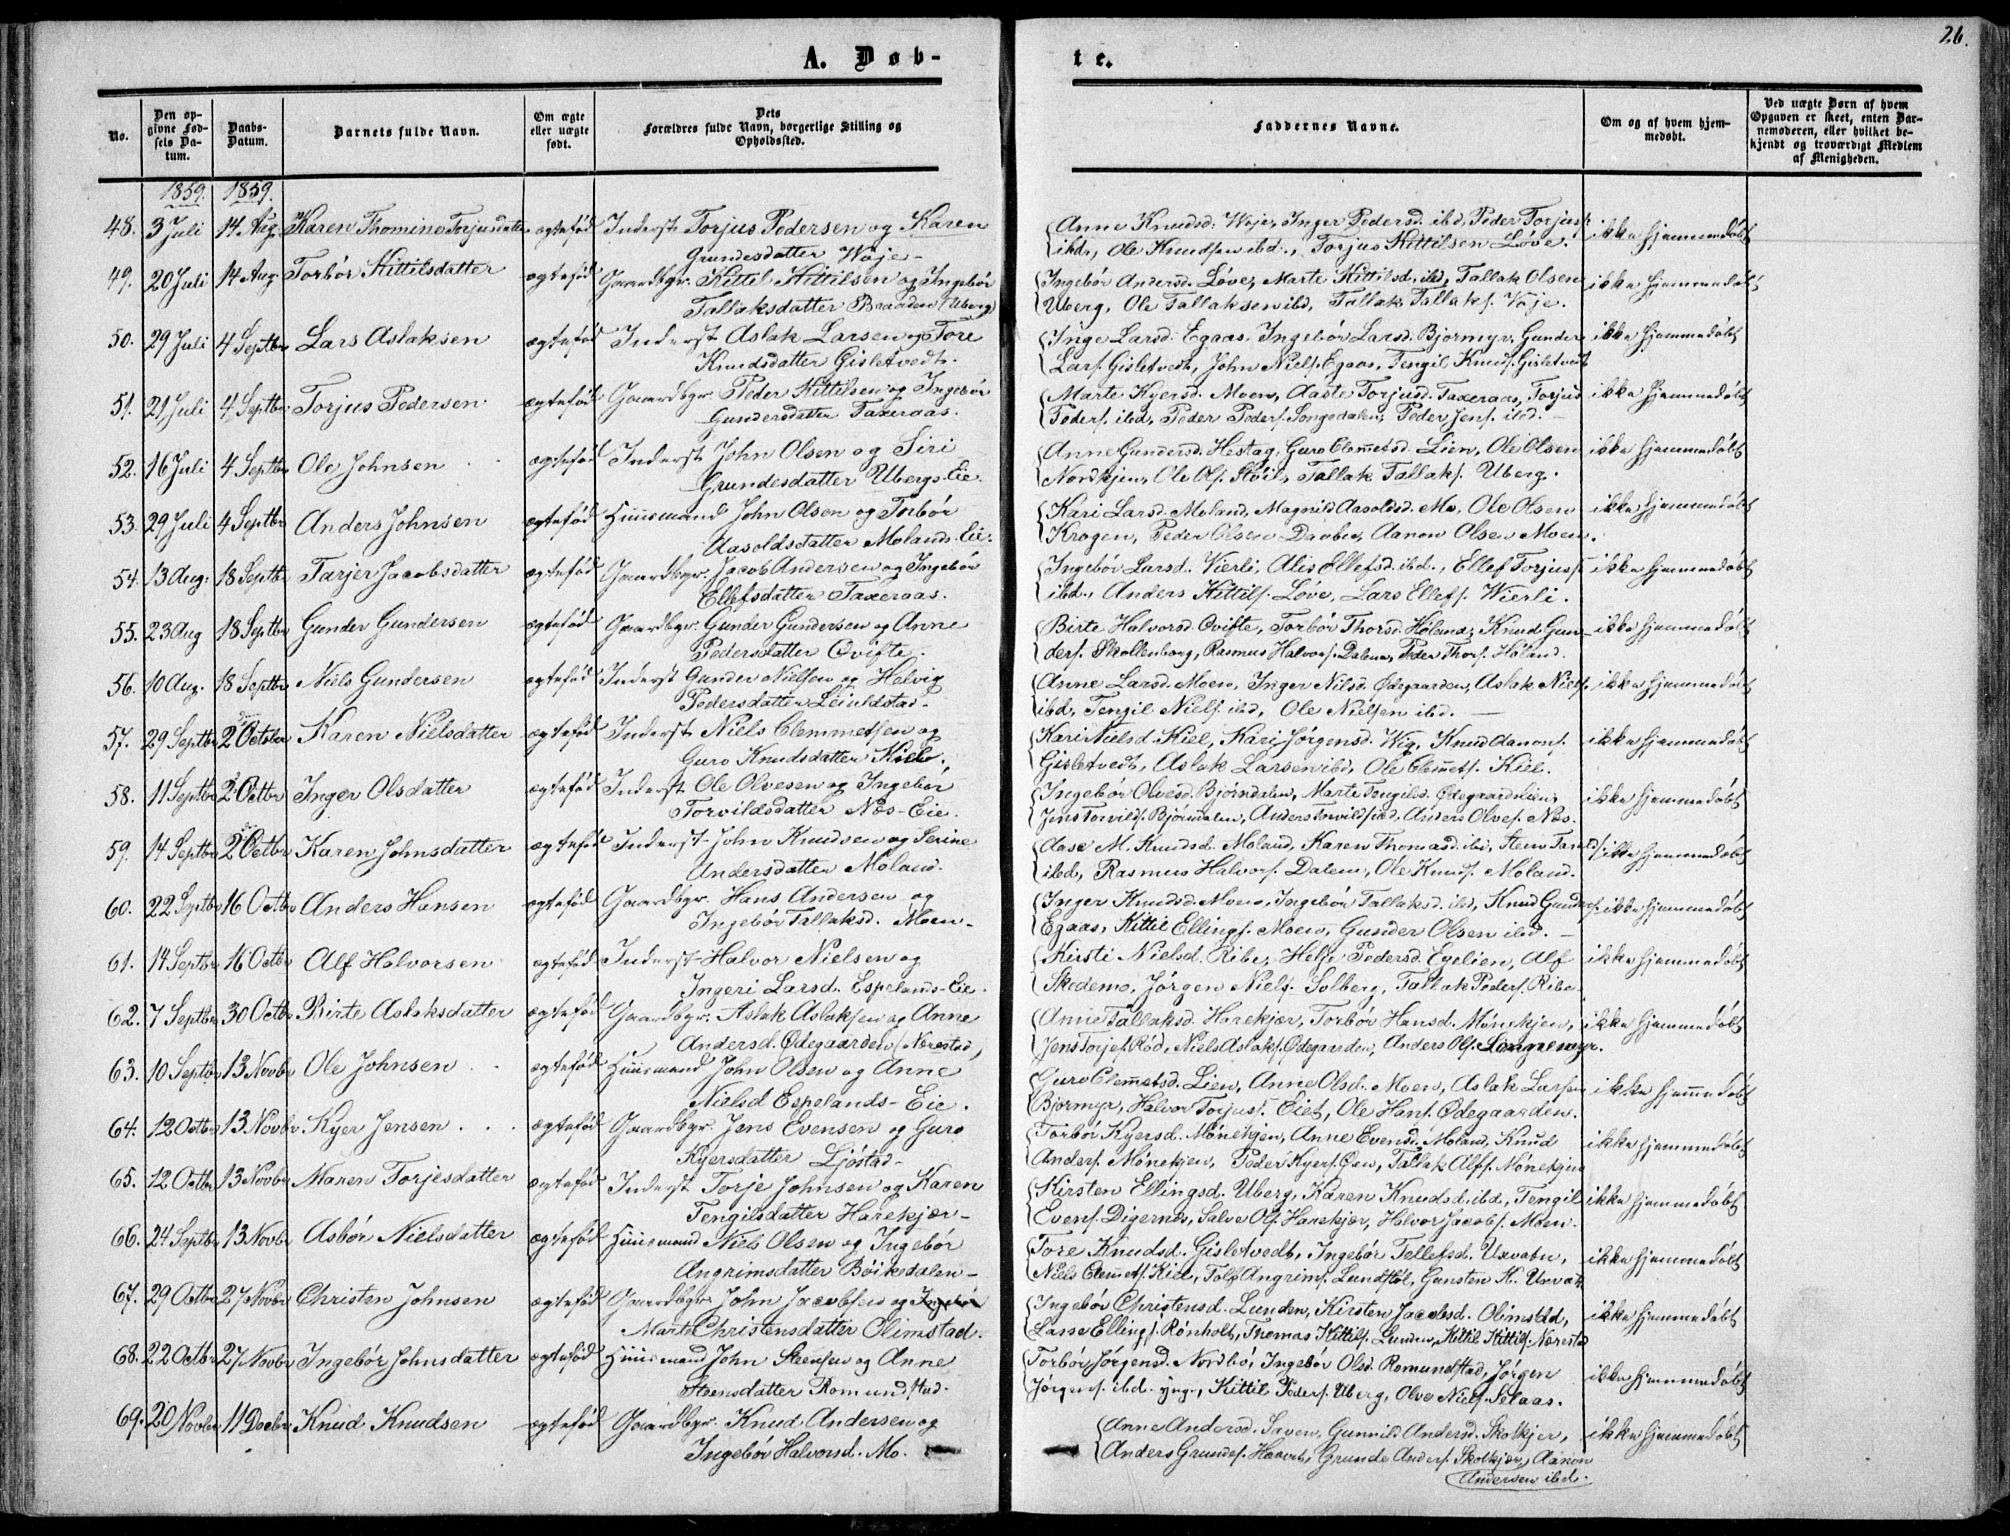 26.
A. Døb-
te.
No.
Den op-
givne Fød-
sels Da-
tum.
Daabs-
Datum.
Barnets fulde Navn.
Om ægte
eller uægte
født.
Dets
Forældres fulde Navn, borgerlige Stilling og
Opholdssted.
Faddernes Navne.
Om og af hvem hjem-
medøbt.
Ved uægte Børn af hvem
Opgaven er skeet, enten Bar-
nemoderen, eller hvilket be-
kjendt og troværdigt Medlem
af Menigheden.
1859. 1859.
48. 3 Juli 14 Aug. Karen Thomine Torjusdatter ægtefød Inderst Torjus Pedersen og Karen
Grundesdatter Woje-
Anne Knudsd. Woje, Inger Pedersd. ibd, Peder Torjuss.
ibd., Ole Knudsen ibd., Torjus Kittilsen Løve.
ikke hjemmedøbt
49. 20 Juli 14 Aug Torbør Kittilsdatter ægtefød Gaardbgr. Kittil Kittilsen og Ingebør
Tallaksdatter Braaden (Uberg)
Ingebør Andersd. Løve, Marte Kittilsd. ibd, Tallak Olsen
Uberg, Ole Tallaksen ibd, Tallak Tallaks. Voje.
ikke hjemmedøbt
50. 29 Juli 4 Septbr Lars Aslaksen ægtefød Inderst Aslak Larsen og Tore
Knudsdatter Gisletvedt.
Inge Larsd. Egaas, Ingebør Larsd. Bjormyr, Gunder
Lars. Gisletvedt, John Niels. Egaas, Tengil Knuds. Gisletvedt
ikke hjemmedøbt
51. 21 Juli 4 Septbr Torjus Pedersen ægtefød Gaardbgr. Peder Kittilsen og Ingebør
Gundersdatter Taxeraas.
Marte Kyersd. Moen, Aaste Torjusd. Taxeraas, Torjus
Peders. ibd, Peder Peders. Songedalen, Peder Jens. ibd.
ikke hjemmedøbt
52. 16 Juli 4 Septbr Ole Johnsen ægtefød Inderst John Olsen og Siri
Grundesdatter Ubergs-Eie.
Anne Gundersd. Hestag, Guro Clemetsd. Lien, Ole Olsen
Nordkjen, Ole Ols. Støil, Tallak Tallaks. Uberg.
ikke hjemmedøbt
53. 29 Juli 4 Septbr Anders Johnsen ægtefød Huusmand John Olsen og Torbør
Aasoldsdatter Molands-Eie.
Kari Larsd. Moland, Magnild Aasoldsd. Mo, Ole Olsen
Krogen, Peder Olsen Dauben, Aanon Olsen Moen.
ikke hjemmedøbt
54. 13 Aug: 18 Septbr Tarjer Jacobsdatter ægtefød Gaardbgr. Jacob Andersen og Ingebør
Ellefsdatter Taxeraas.
Ingebør Larsd. Vierli, Alis Ellefsd. ibd., Ellef Torjuss.
ibd., Anders Kittils. Løve, Lars Ellefs. Wierli.
ikke hjemmedøbt
55. 23 Aug 18 Septbr Gunder Gundersen ægtefød Gaardbgr. Gunder Gundersen og Anne
Pedersdatter Øvifte.
Birte Halvorsd. Øvifte, Torbør Thorsd. Høland, Knud Gun-
ders. Skollenborg, Rasmus Halvors. Dalene, Peder Thors. Høland.
ikke hjemmedøbt
56. 10 Aug. 18 Septbr Niels Gundersen ægtefød Inderst Gunder Nielsen og Helvig
Pedersdatter
Anne Larsd. Moen, Inger Nilsd. Ødegaarden, Aslak Niels.
ibd, Tengil Niels. ibd, Ole Nielsen ibd.
ikke hjemmedøbt
57. 29 Septbr 2 October Karen Nielsdatter ægtefød Inderst Niels Clemmetsen og
Guro Knudsdatter Kiel.
Kari Nielsd. Kiel, Kari Jørgensd. Wig, Knud Aanons.
Gisletvedt, Aslak Larsen ibd, Ole Clemets. Kiel.
ikke hjemmedøbt
58. 11 Septbr 2 Octbr Inger Olsdatter ægtefød Inderst Ole Olvesen og Ingebør
Torvildsdatter Næs-Eie.
Ingebør Olvesd. Bjørndalen, Marte Tengilsd. Ødegaardslien,
Jens Torvilds. Bjørndalen, Anders Torvilds. ibd. Anders Olves. Næs.
ikke hjemmedøbt
59. 14 Septbr 2 Octbr Karen Johnsdatter ægtefød Inderst John Knudsen og Serine
Andersdatter Moland.
Aase M. Knudsd. Moland, Karen Thomasd. ibd,
ibd, Rasmus Halvors. Dalene, Ole Knuds. Moland.
ikke hjemmedøbt
60. 22 Septbr 16 Octbr Anders Hansen ægtefød Gaardbgr. Hans Andersen og
Ingebør Tallaksd. Moen-
Inger Knudsd. Moen, Ingebør Tallaksd. ibd, Knud Gunders.
Egaas, Kittil Ellings. Moen, Gunder Olsen ibd.
ikke hjemmedøbt
61. 14 Septbr 16 Octbr Alf Halvorsen ægtefød Inderst Halvor Nielsen og
Ingeri Larsd. Espelands-Eie.
Kirsti Nielsd. Ribe, Helje Pedersd. Egelien, Alf
Skedemo, Jørgen Niels. Solberg, Tallak Peders. Ribe
ikke hjemmedøbt
62. 7 Septbr 30 Octbr Birte Aslaksdatter ægtefød Gaardbgr. Aslak Aslaksen og Anne
Andersd. Ødegaarden (Nærestad)
Anne Tallaksd. Harekjær, Torbør Hansd. Mønekjen,
Jens Torjes. Rød, Niels Aslaks. Ødegaarden, Anders Ols. Longremyr.
ikke hjemmedøbt
63. 10 Septbr 13 Novbr Ole Johnsen ægtefød Huusmand John Olsen og Anne
Nielsd Espelands-Eie.
Guro Clemetsd. Lien, Anne Olsd. Moen, Aslak Larsen
Bjormyr, Halvor Torjuss. Eiet, Ole Hans. Ødegaarden.
ikke hjemmedøbt
64. 12 Octbr 13 Novbr Kyer Jensen ægtefød Gaardbgr. Jens Evensen og Guro
Kyersdatter Ljøstad-
Torbør Kyersd. Mønekjen, Anne Evensd. Moland, Knud
Anders. Mønekjen, Peder Kyers. Øen, Tallak Alfs. Mønekjen
ikke hjemmedøbt
65. 12 Octbr 13 Novbr Maren Torjesdatter ægtefød Inderst Torje Johnsen og Karen
Tengilsdatter Harekjær-
Kirsten Ellingsd. Uberg, Karen Knudsd. ibd, Tengil
Evens. Digernes, Salve Ols. Harekjær, Halvor Jacobs. Moen.
ikke hjemmedøbt
66. 24 Septbr 13 Novbr Asbør Nielsdatter ægtefød Huusmand Niels Olsen og Ingebør
Angrimsdatter Bøikedalen-
Tore Knudsd. Gisletvedt, Ingebør Tellefsd. Uxvatn,
Niels Clemets. Kiel, Tolf Angrims. Lundstøl, Gunsten K. Uxvatn
ikke hjemmedøbt
67. 29 Octbr 27 Novbr Christen Johnsen ægtefød Gaardbgr. John Jacobsen og Ingebør
Marte Christensdatter Olimstad.
Ingebør Christensd. Lunden, Kirsten Jacobsd. Olimstad,
Lasse Ellings. Rønholt, Thomas Kittils. Lunden, Kittil Kittils. Nærestad
ikke hjemmedøbt
68. 22 Octbr 27 Novbr Ingebør Johnsdatter ægtefød Huusmand John Steensen og Anne
Steensdatter Romundstad.
Torbør Jørgensd. Nordbø, Ingebør Olsd. Romundstad, Jørgen
Jørgens. ibd. yng., Kittil Peders. Uberg, Olve Niels. Selaas.
ikke hjemmedøbt
69. 20 Novbr 11 Decbr Knud Knudsen ægtefød Gaardbgr. Knud Andersen og
Ingebør Halvorsd. Mo.
Anne Andersd. Saven, Gunnild Andersd. Skolkjer,
Anders Grundes. Haavet, Grunde Anders. Skolkjær, Aanon
Andersen ibd.
ikke hjemmedøbt